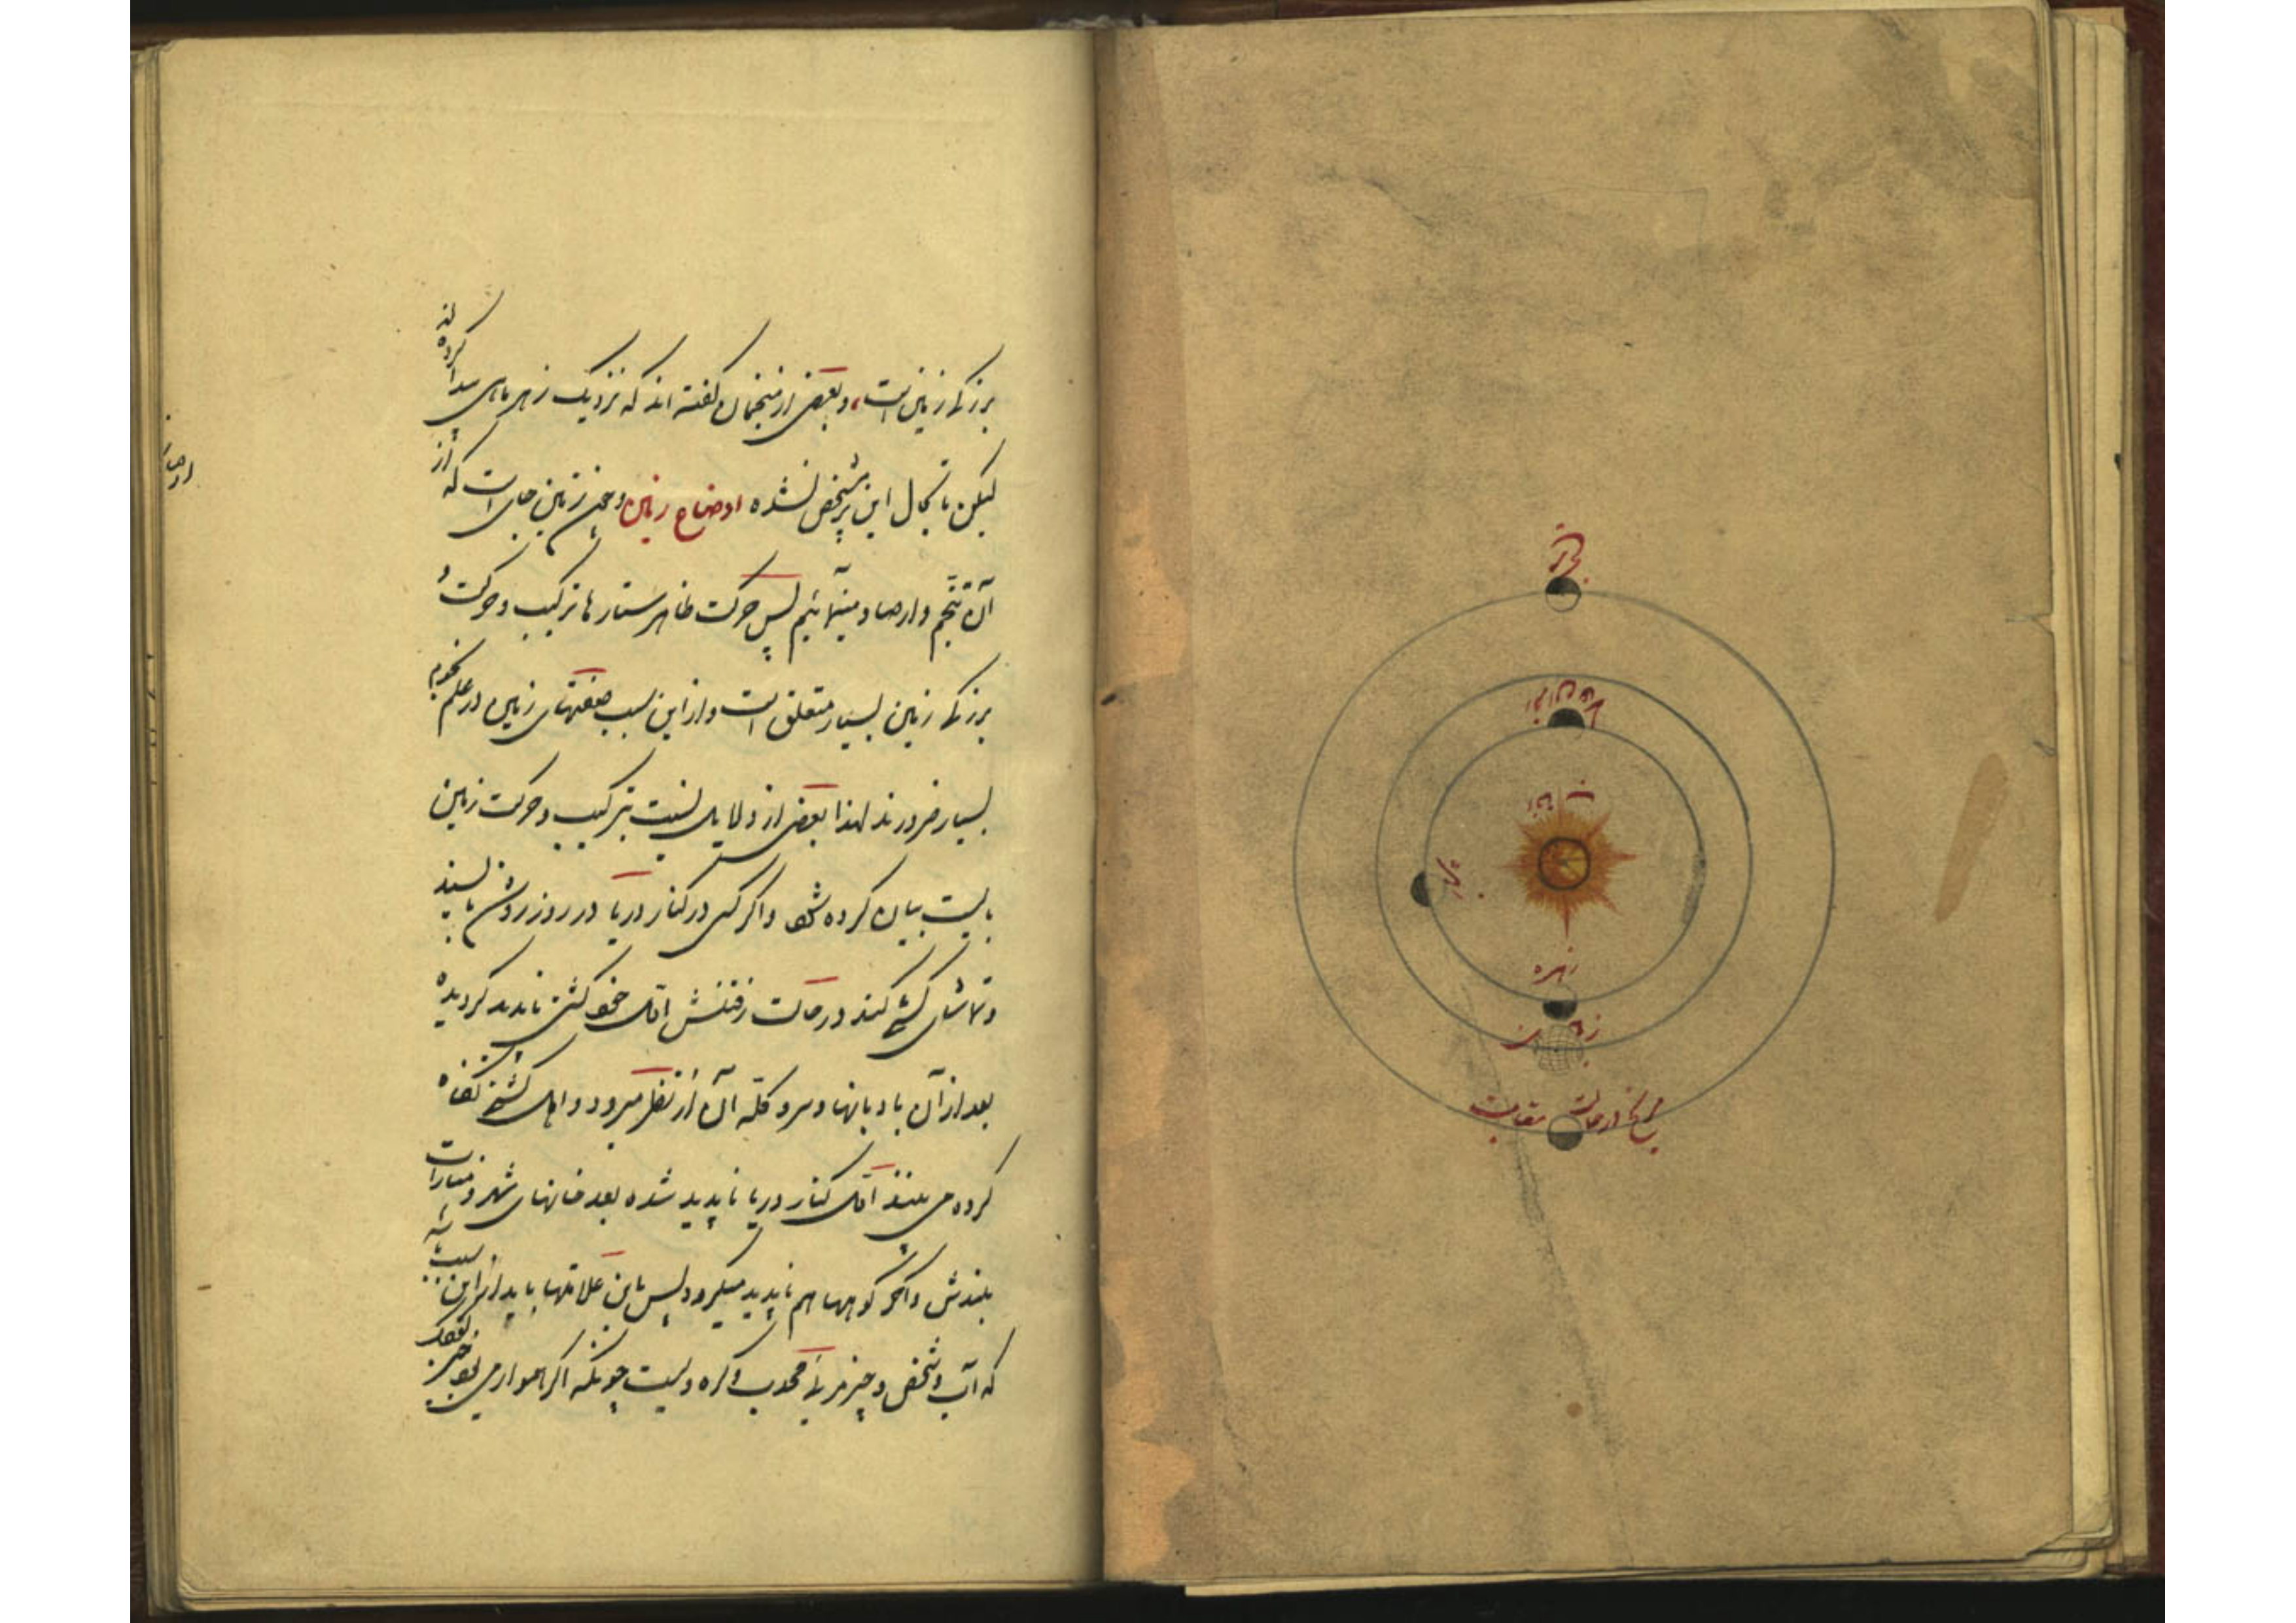 مریخ
آفتاب
زهره
زمین
مریخ در حالت مقابله
بزرگی زمین است، و بعضی از منجمان گفته اند که نزدیک زهره ماهی پیدا کرده اند
لیکن تا بحال این مشخص نشده اوضاع زمین و چون زمین جای است که از
آن تنجیم و ارصاد مینمائیم پس حرکت ظاهر ستارها بترکیب و حرکت و
بزرگی زمین بسیار متعلق است و از این سبب صفتهای زمین در علم نجوم
بسیار ضرورند لهذا بعضی از دلایل نسبت بترکیب و حرکت زمین
بایست بیان کرده شود و اگر کسی در کنار دریا در روز روشن بایستد
و تماشای کشتی کند در حالت رفتنش اول خود کشتی ناپدید گردیده
بعد از آن بادبانها و سر دکله آن از نظر میرود و اهل کشتی نگاه
کرده می بینند اول کنار دریا ناپدید شده بعد خانهای شهر و منارات
بلندش و آخر کوهها هم ناپدید میگردد پس باین علامتها باید از این سبب باشد
که آب و شخص و چیز مرئی محدب و کره ویست چونکه اگر هموار می بود